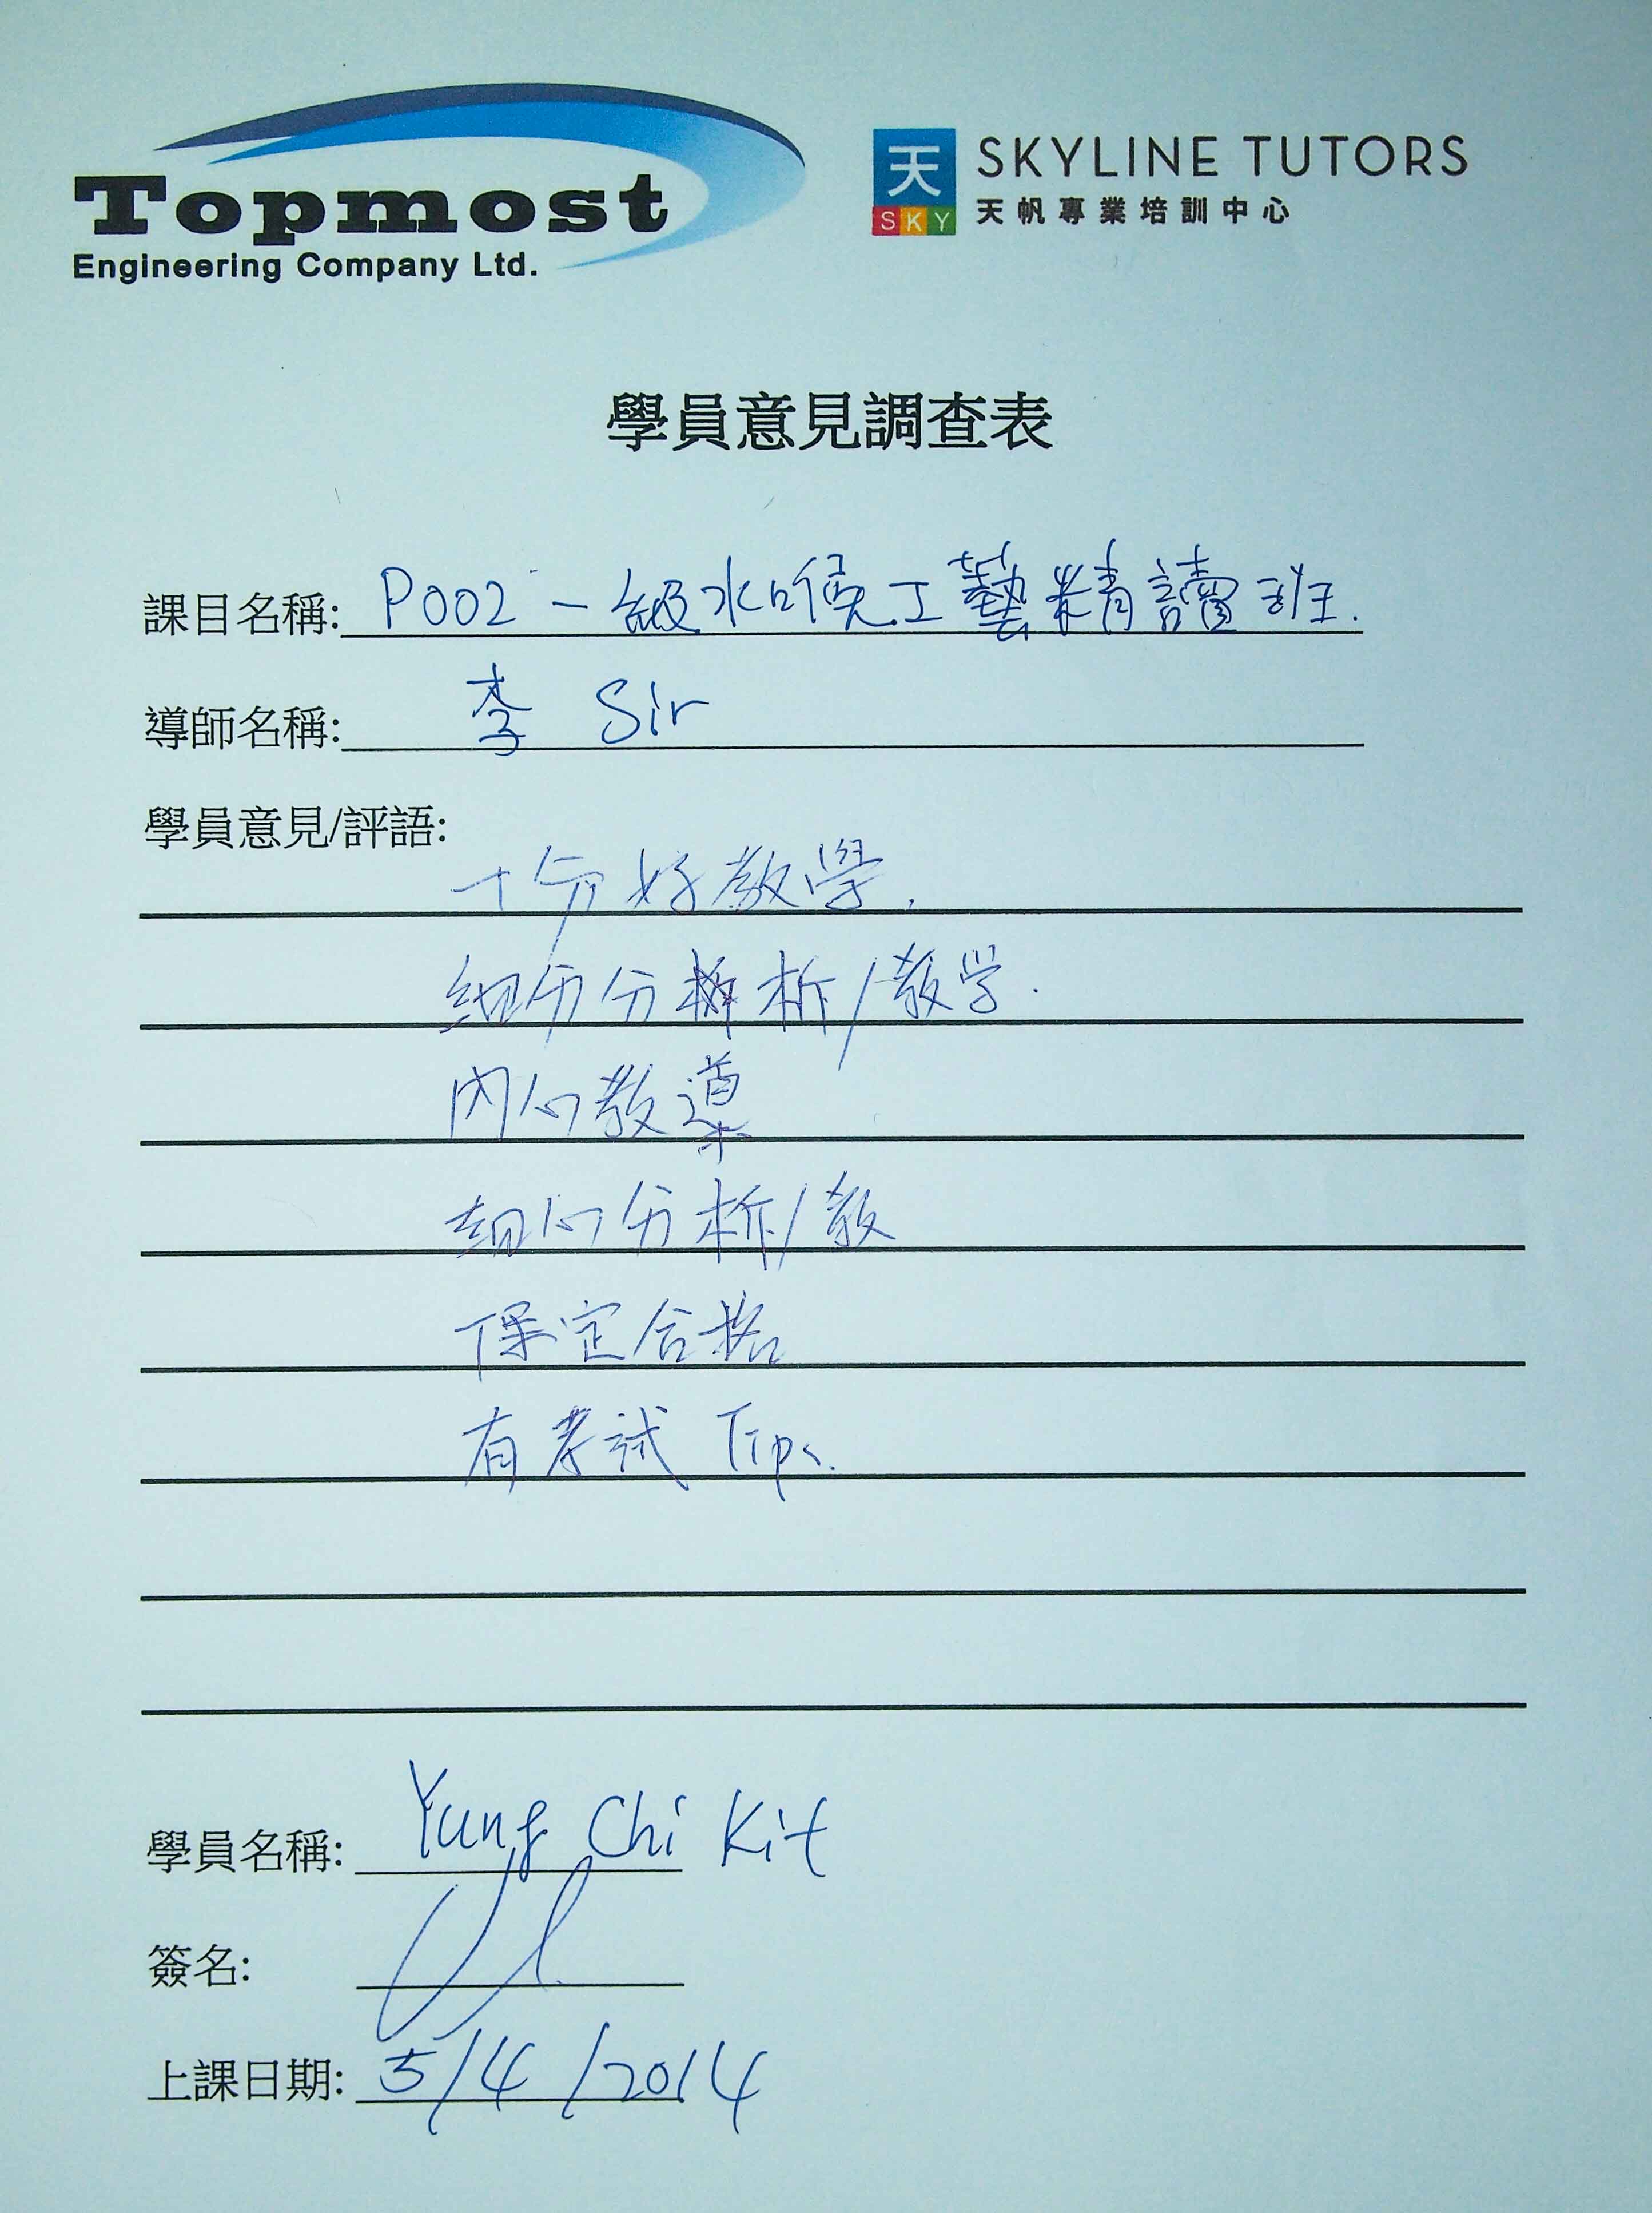 Topmost
Engineering Company Ltd.
天
SKY
SKYLINE TUTORS
天帆專業培訓中心
學員意見調查表
課目名稱: P002 一級水喉工藝精讀班.
導師名稱: 李 Sir
學員意見/評語:
十分好教學.
細分分析/教学.
內心教導
細心分析/教
保定合格
有考試 Tips.
學員名稱: Yung Chi Kit
簽名:
上課日期: 5/4/2014